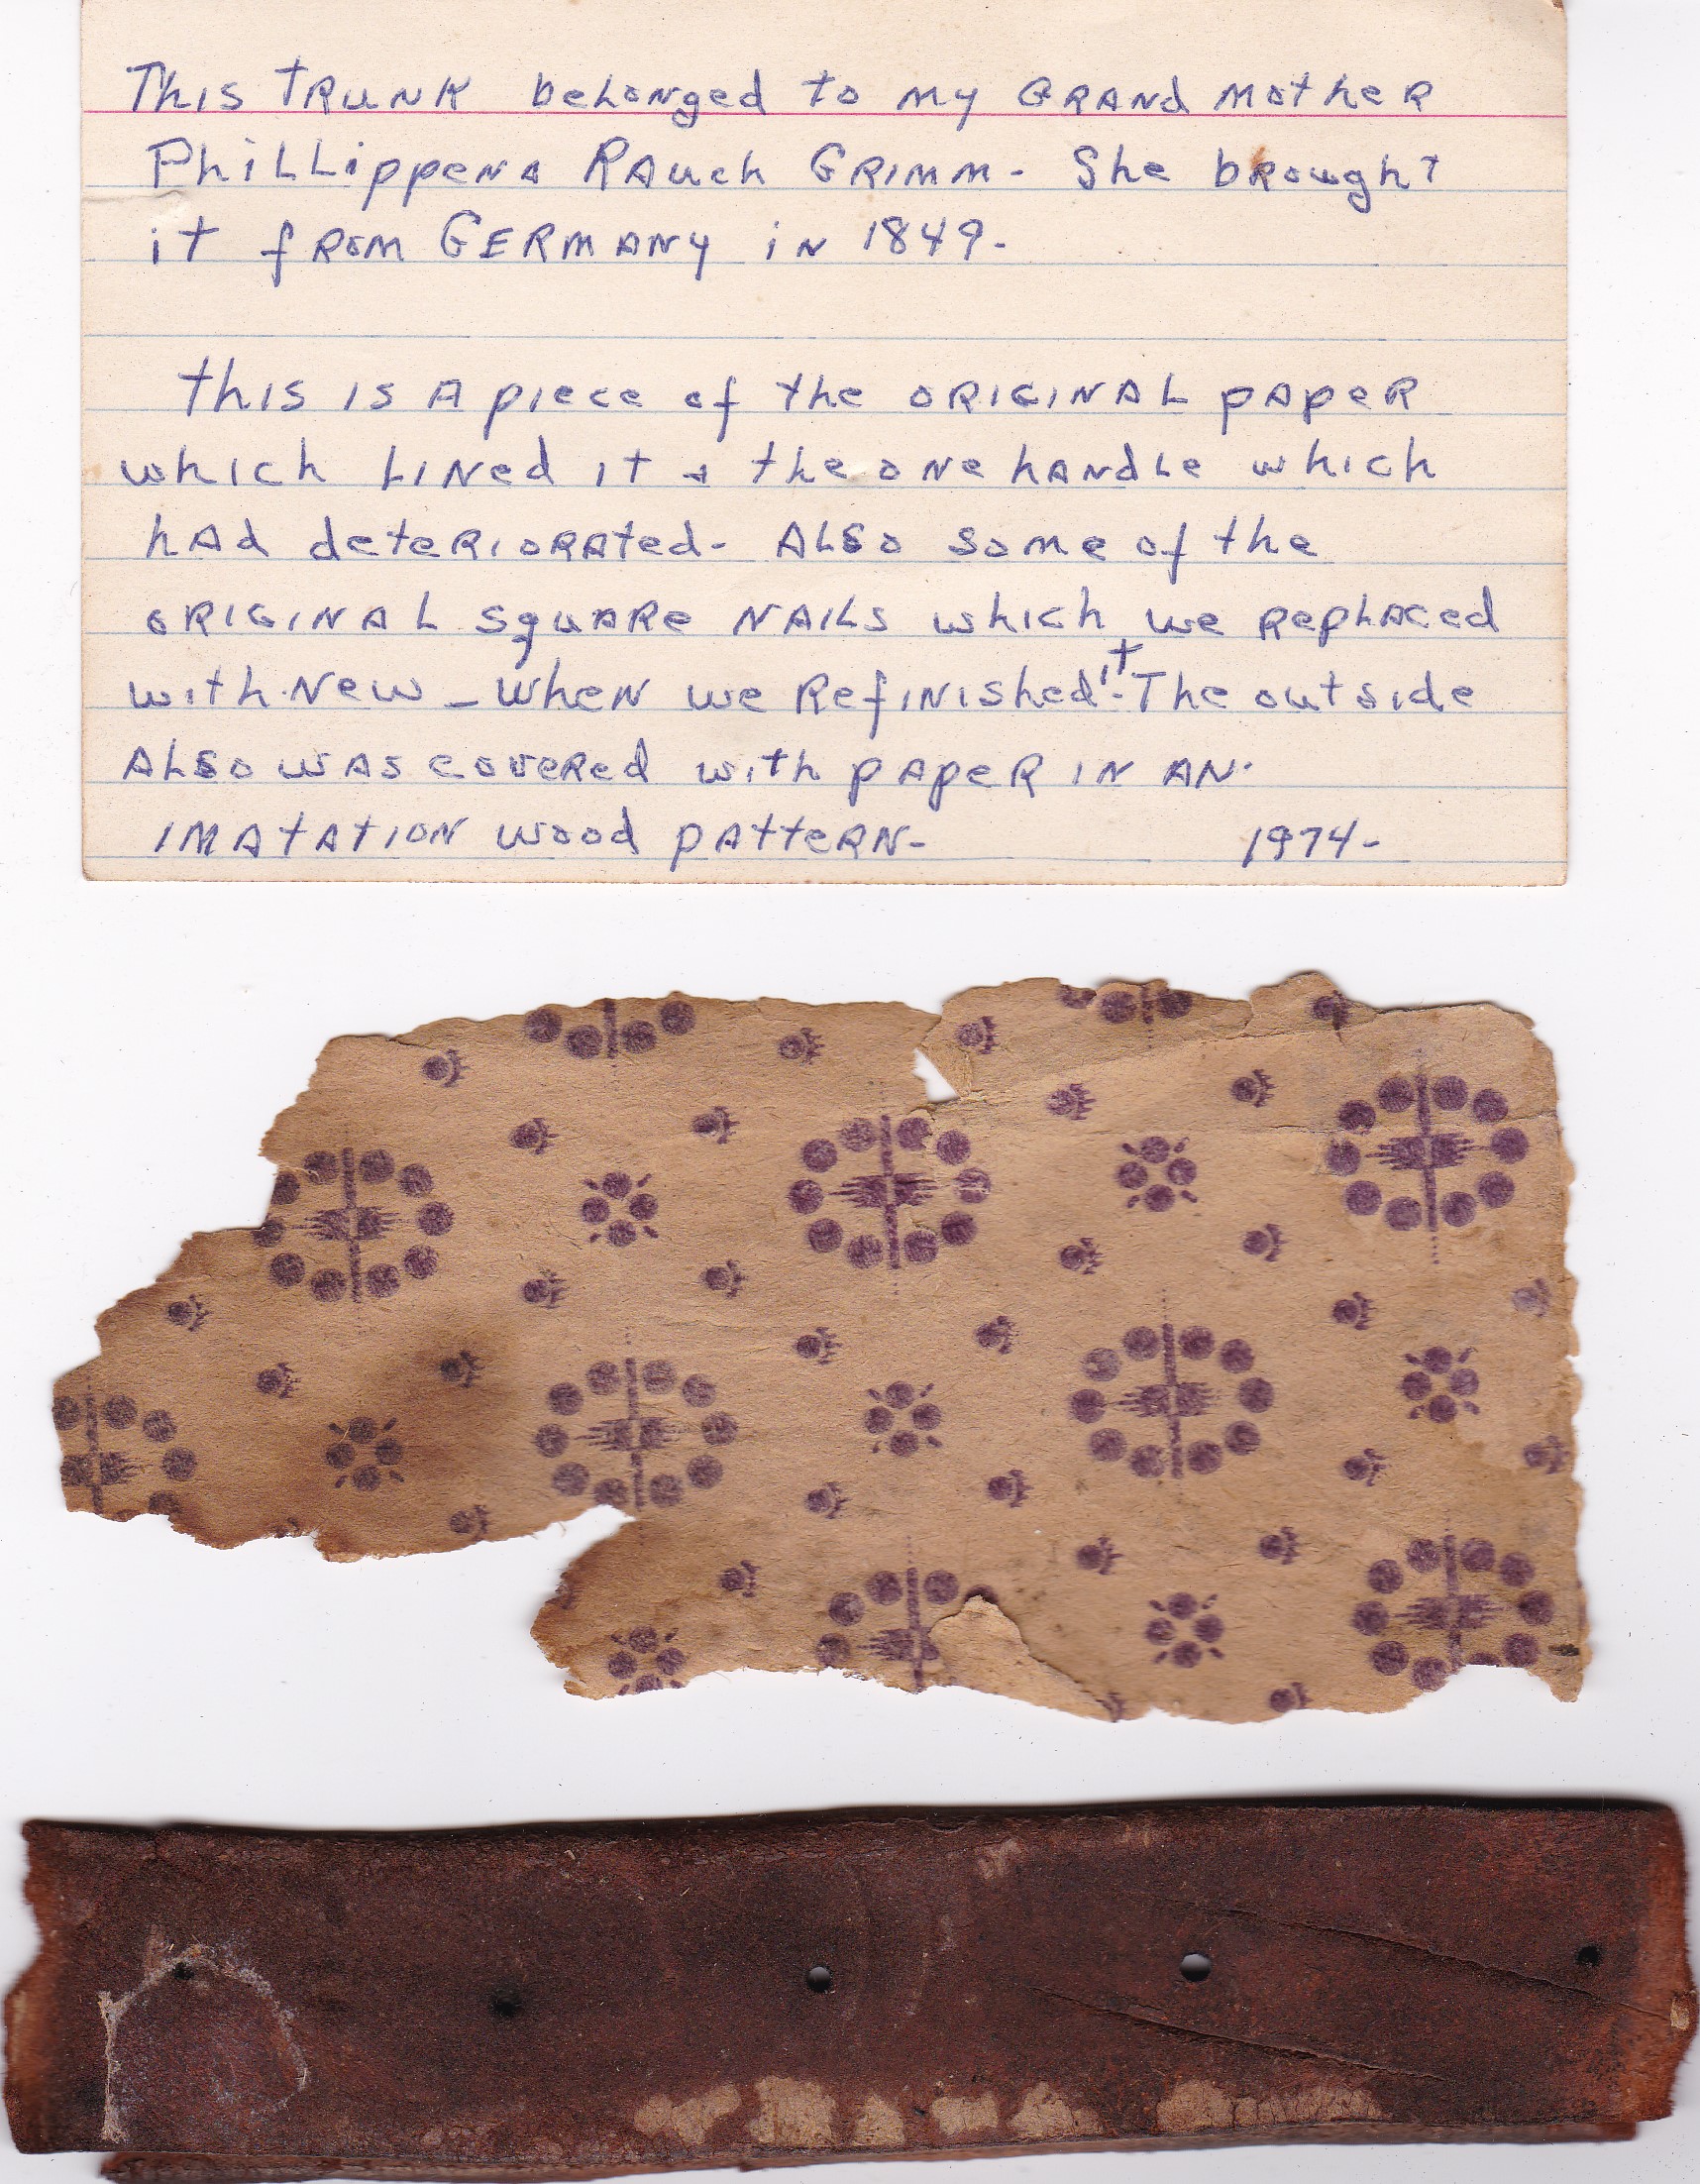 This trunk belonged to my Grand mother
Phillippena Rauch Grimm. She brought
it from Germany in 1849.
this is a piece of the original paper
which lined it + the one handle which
had deteriorated. Also some of the
original square nails which we replaced
with new - when we refinished it. The outside
also was covered with paper in an
imatation wood pattern.    1974.